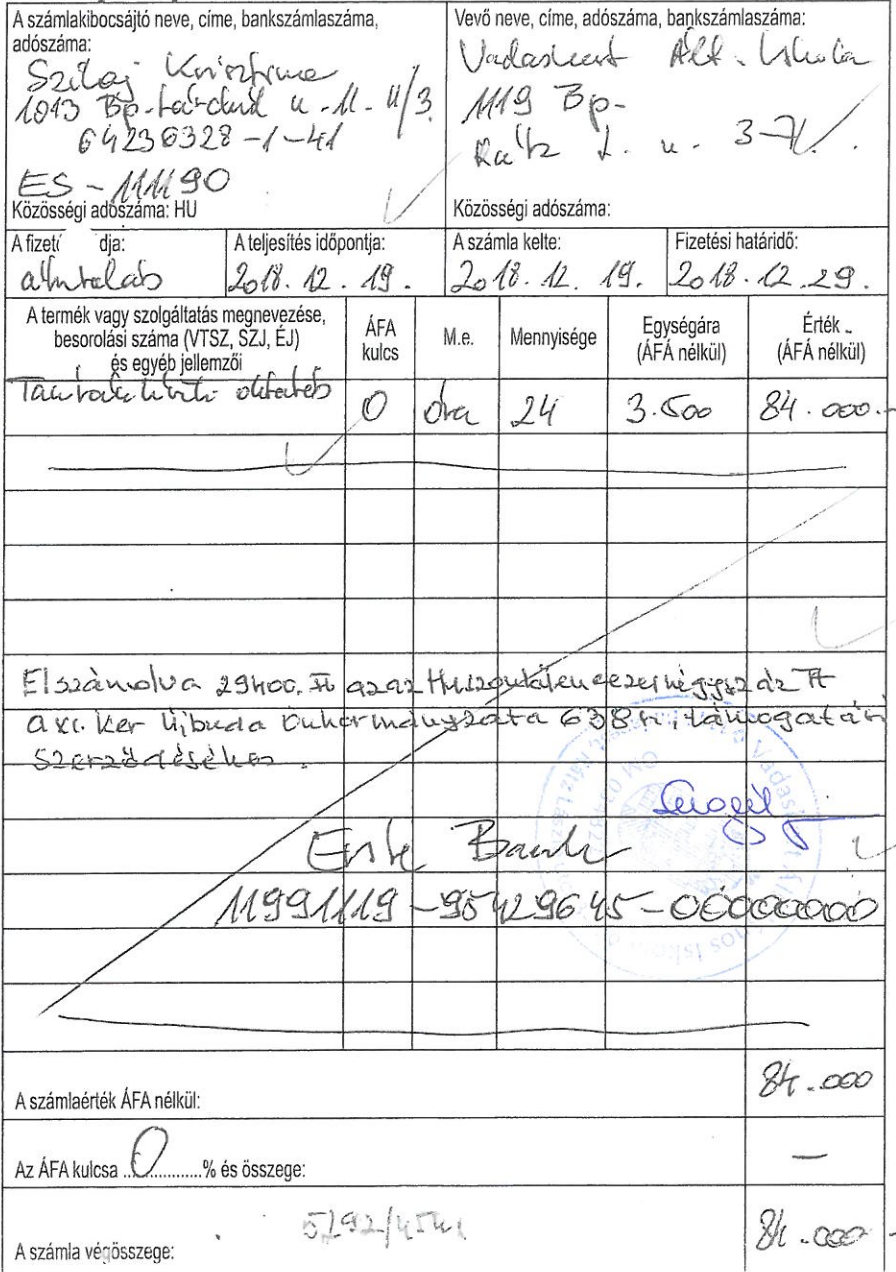 A számlakibocsájtó neve, címe, bankszámlaszáma,
adószáma:
Szilaj Krisztina
1013 Bp. u. 11. II/3.
64236328-1-41
ES-111190
Közösségi adószáma: HU
Vevő neve, címe, adószáma, bankszámlaszáma:
Vadaskert Ált. Iskola
1119 Bp.
Rátz L. u. 3-7.
Közösségi adószáma:
A fizeté dja:
átutalás
A teljesítés időpontja:
2018. 12. 19.
A számla kelte:
2018. 12. 19.
Fizetési határidő:
2018. 12. 29.
A termék vagy szolgáltatás megnevezése,
besorolási száma (VTSZ, SZJ, ÉJ)
és egyéb jellemzői
ÁFA
kulcs
M.e.
Mennyisége
Egységára
(ÁFA nélkül)
Érték
(ÁFA nélkül)
oktatás 0 óra 24 3.500 84.000.-
Elszámolva 29400. Ft azaz Huszonkilencezernégyszáz Ft
a XI. Ker Újbuda Önkormányzata 638 támogatási
szerződéséhez.
Erste Bank
11991119-95429645-00000000
A számlaérték ÁFA nélkül: 84.000
Az ÁFA kulcsa 0 % és összege: —
A számla végösszege: 84.000.-